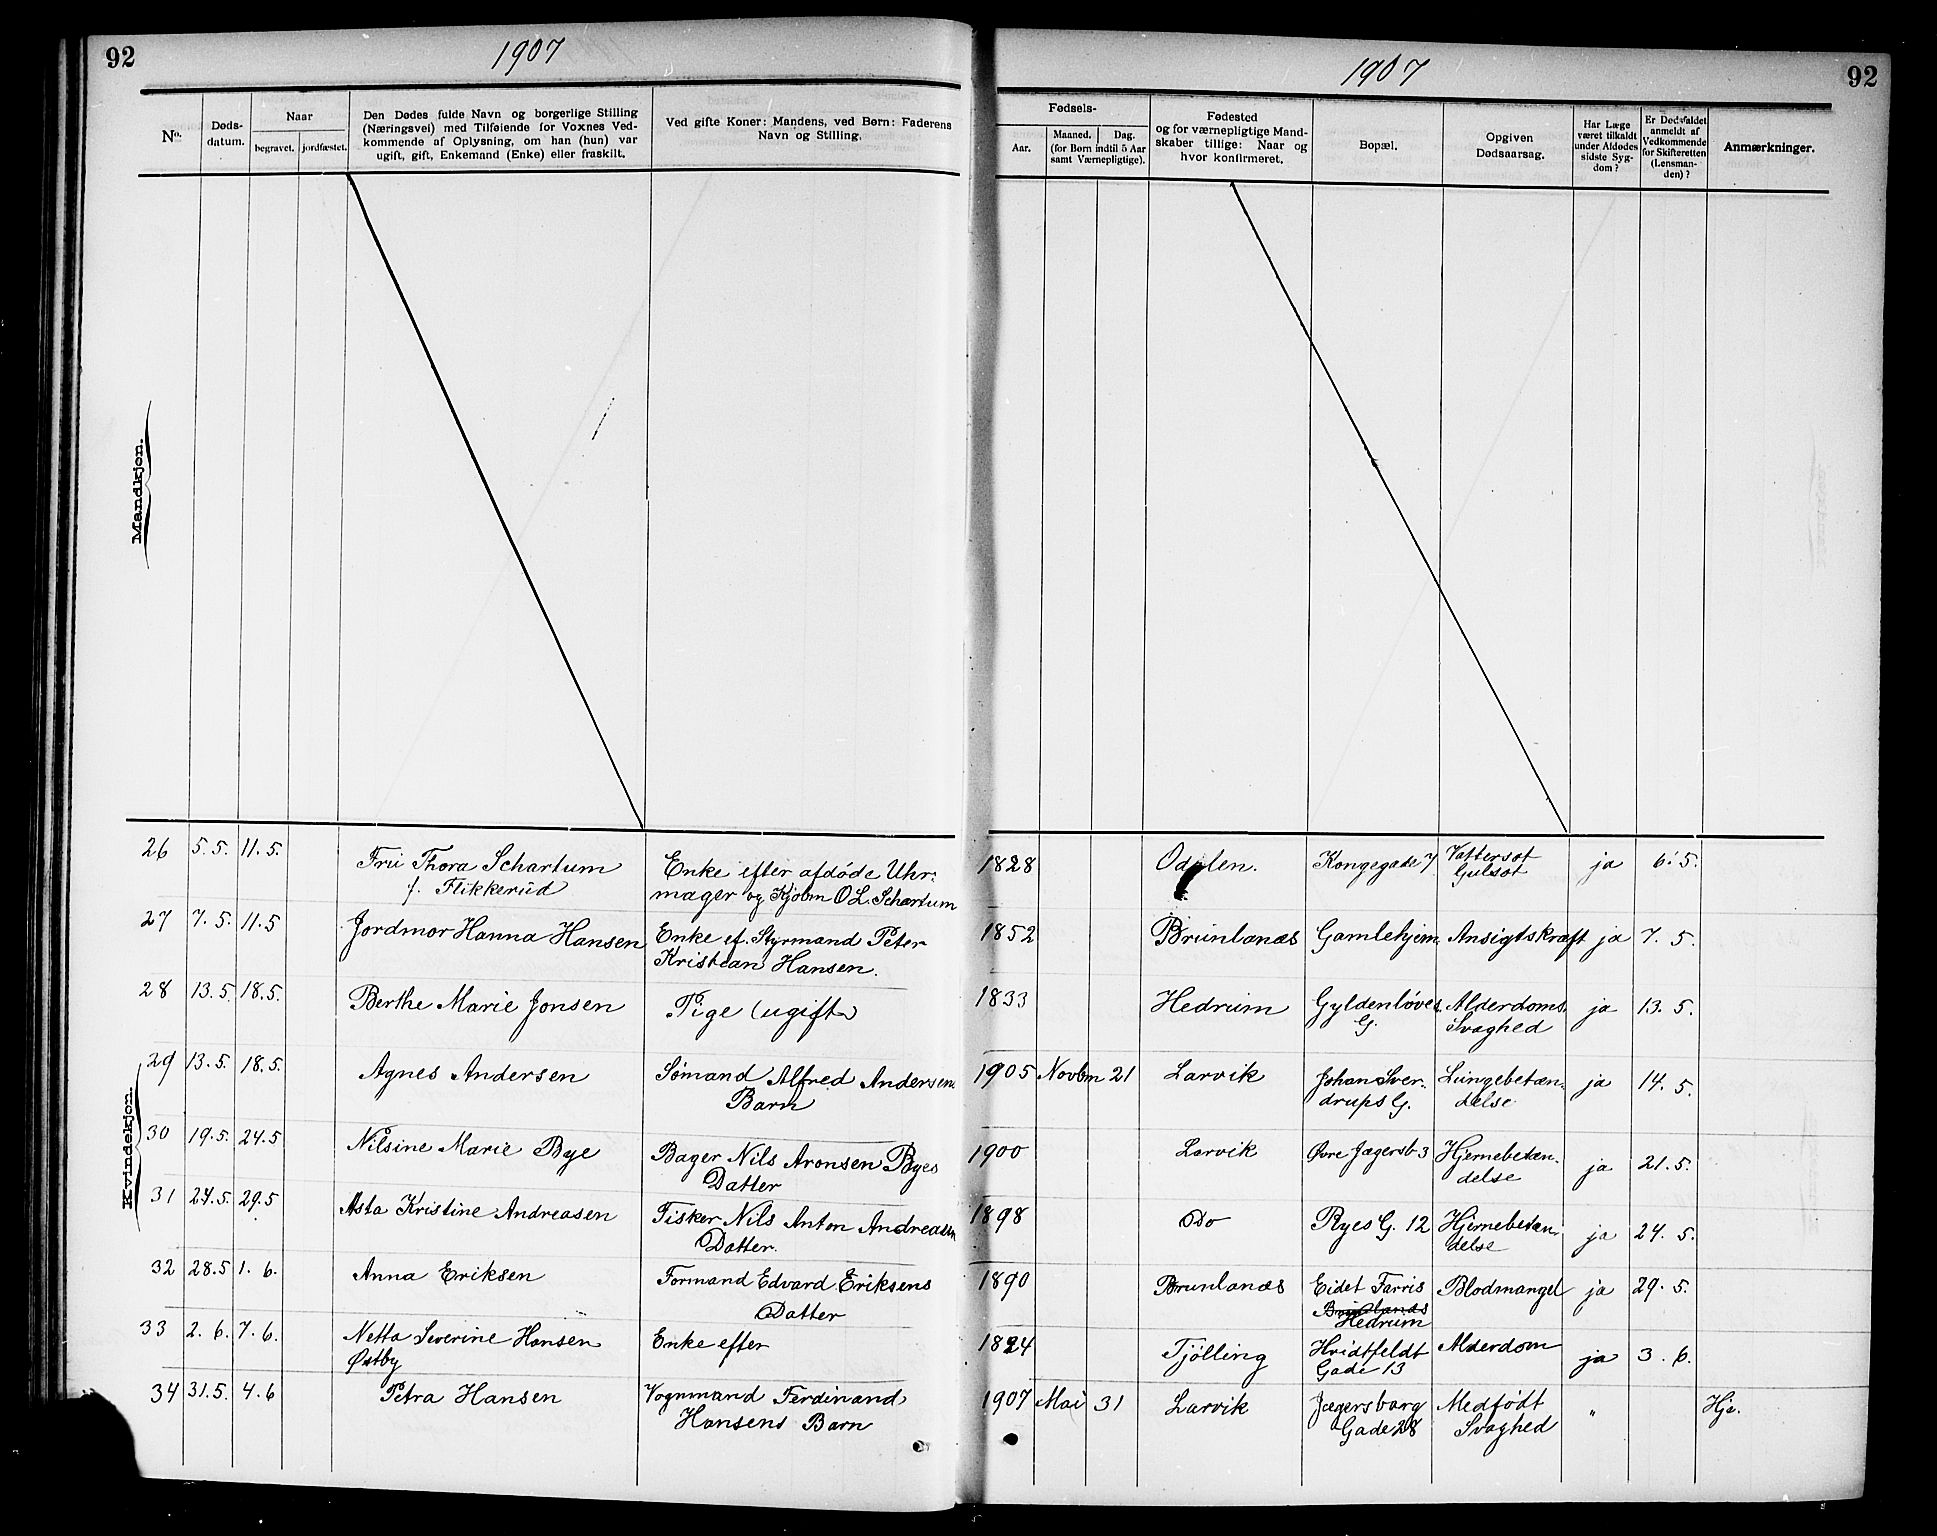 92
1907
1907
92
No.
Døds-
datum.
Naar
begravet.
jordfæstet.
Den Dødes fulde Navn og borgerlige Stilling
(Næringsvei) med Tilføiende for Voxnes Ved-
kommende af Oplysning, om han (hun) var
ugift, gift, Enkemand (Enke) eller fraskilt.
Ved gifte Koner: Mandens, ved Børn: Faderens
Navn og Stilling.
Fødsels-
Aar.
Maaned. Dag.
(for Børn indtil 5 Aar
samt Værnepligtige).
Fødested
og for værnepligtige Mand-
skaber tillige: Naar og
hvor konfirmeret.
Bopæl.
Opgiven
Dødsaarsag.
Har Læge
været tilkaldt
under Afdødes
sidste Syg-
dom?
Er Dødsfaldet
anmeldt af
Vedkommende
for Skifteretten
(Lensman-
den)?
Anmærkninger.
Mandkjøn.
Kvindekjøn.
26 5.5. 11.5. Fru Thora Schartum Enke efter afdøde Uhr- 1828 Odalen. Kongegade 7 Vattersot ja 6.5.
f. Flikkerud mager og Kjøbm O L. Schartum Gulsot
27 7.5. 11.5 Jordmor Hanna Hansen Enke ef. Styrmand Peter 1852 Brunlanæs Gamlehjem Ansigtskræft ja 7.5.
Kristian Hansen.
28 13.5. 18.5. Berthe Marie Jonsen Pige (ugift) 1833 Hedrum Gyldenløves Alderdoms ja 13.5.
G. Svaghed
29 13.5. 18.5. Agnes Andersen Sømand Alfred Andersens 1905 Novbm 21 Larvik Johan Sver- Lungebetæn- ja 14.5.
Barn drups G. delse
30 19.5. 24.5 Nilsine Marie Bye Bager Nils Aronsen Byes 1900 Larvik Øvre Jægersb 3 Hjernebetæn- ja 21.5.
Datter delse
31 24.5. 29.5 Asta Kristine Andreasen Fisker Nils Anton Andreasen 1898 Do Ryes G. 12 Hjernebetæn- ja 24.5.
Datter. delse
32 28.5 1.6. Anna Eriksen Formand Edvard Eriksens 1890 Brunlanæs Eidet Farris Blodmangel ja 29.5.
Datter Brunlanæs
Hedrum
33 2.6. 7.6. Netta Severine Hansen Enke efter 1824 Tjølling Hvidtfeldt Alderdom ja 3.6.
Østby Gade 13
34 31.5. 4.6 Petra Hansen Vognmand Ferdinand 1907 Mai 31 Larvik Jægersborg Medfødt " Hjd.
Hansens Barn Gade 28 Svaghed